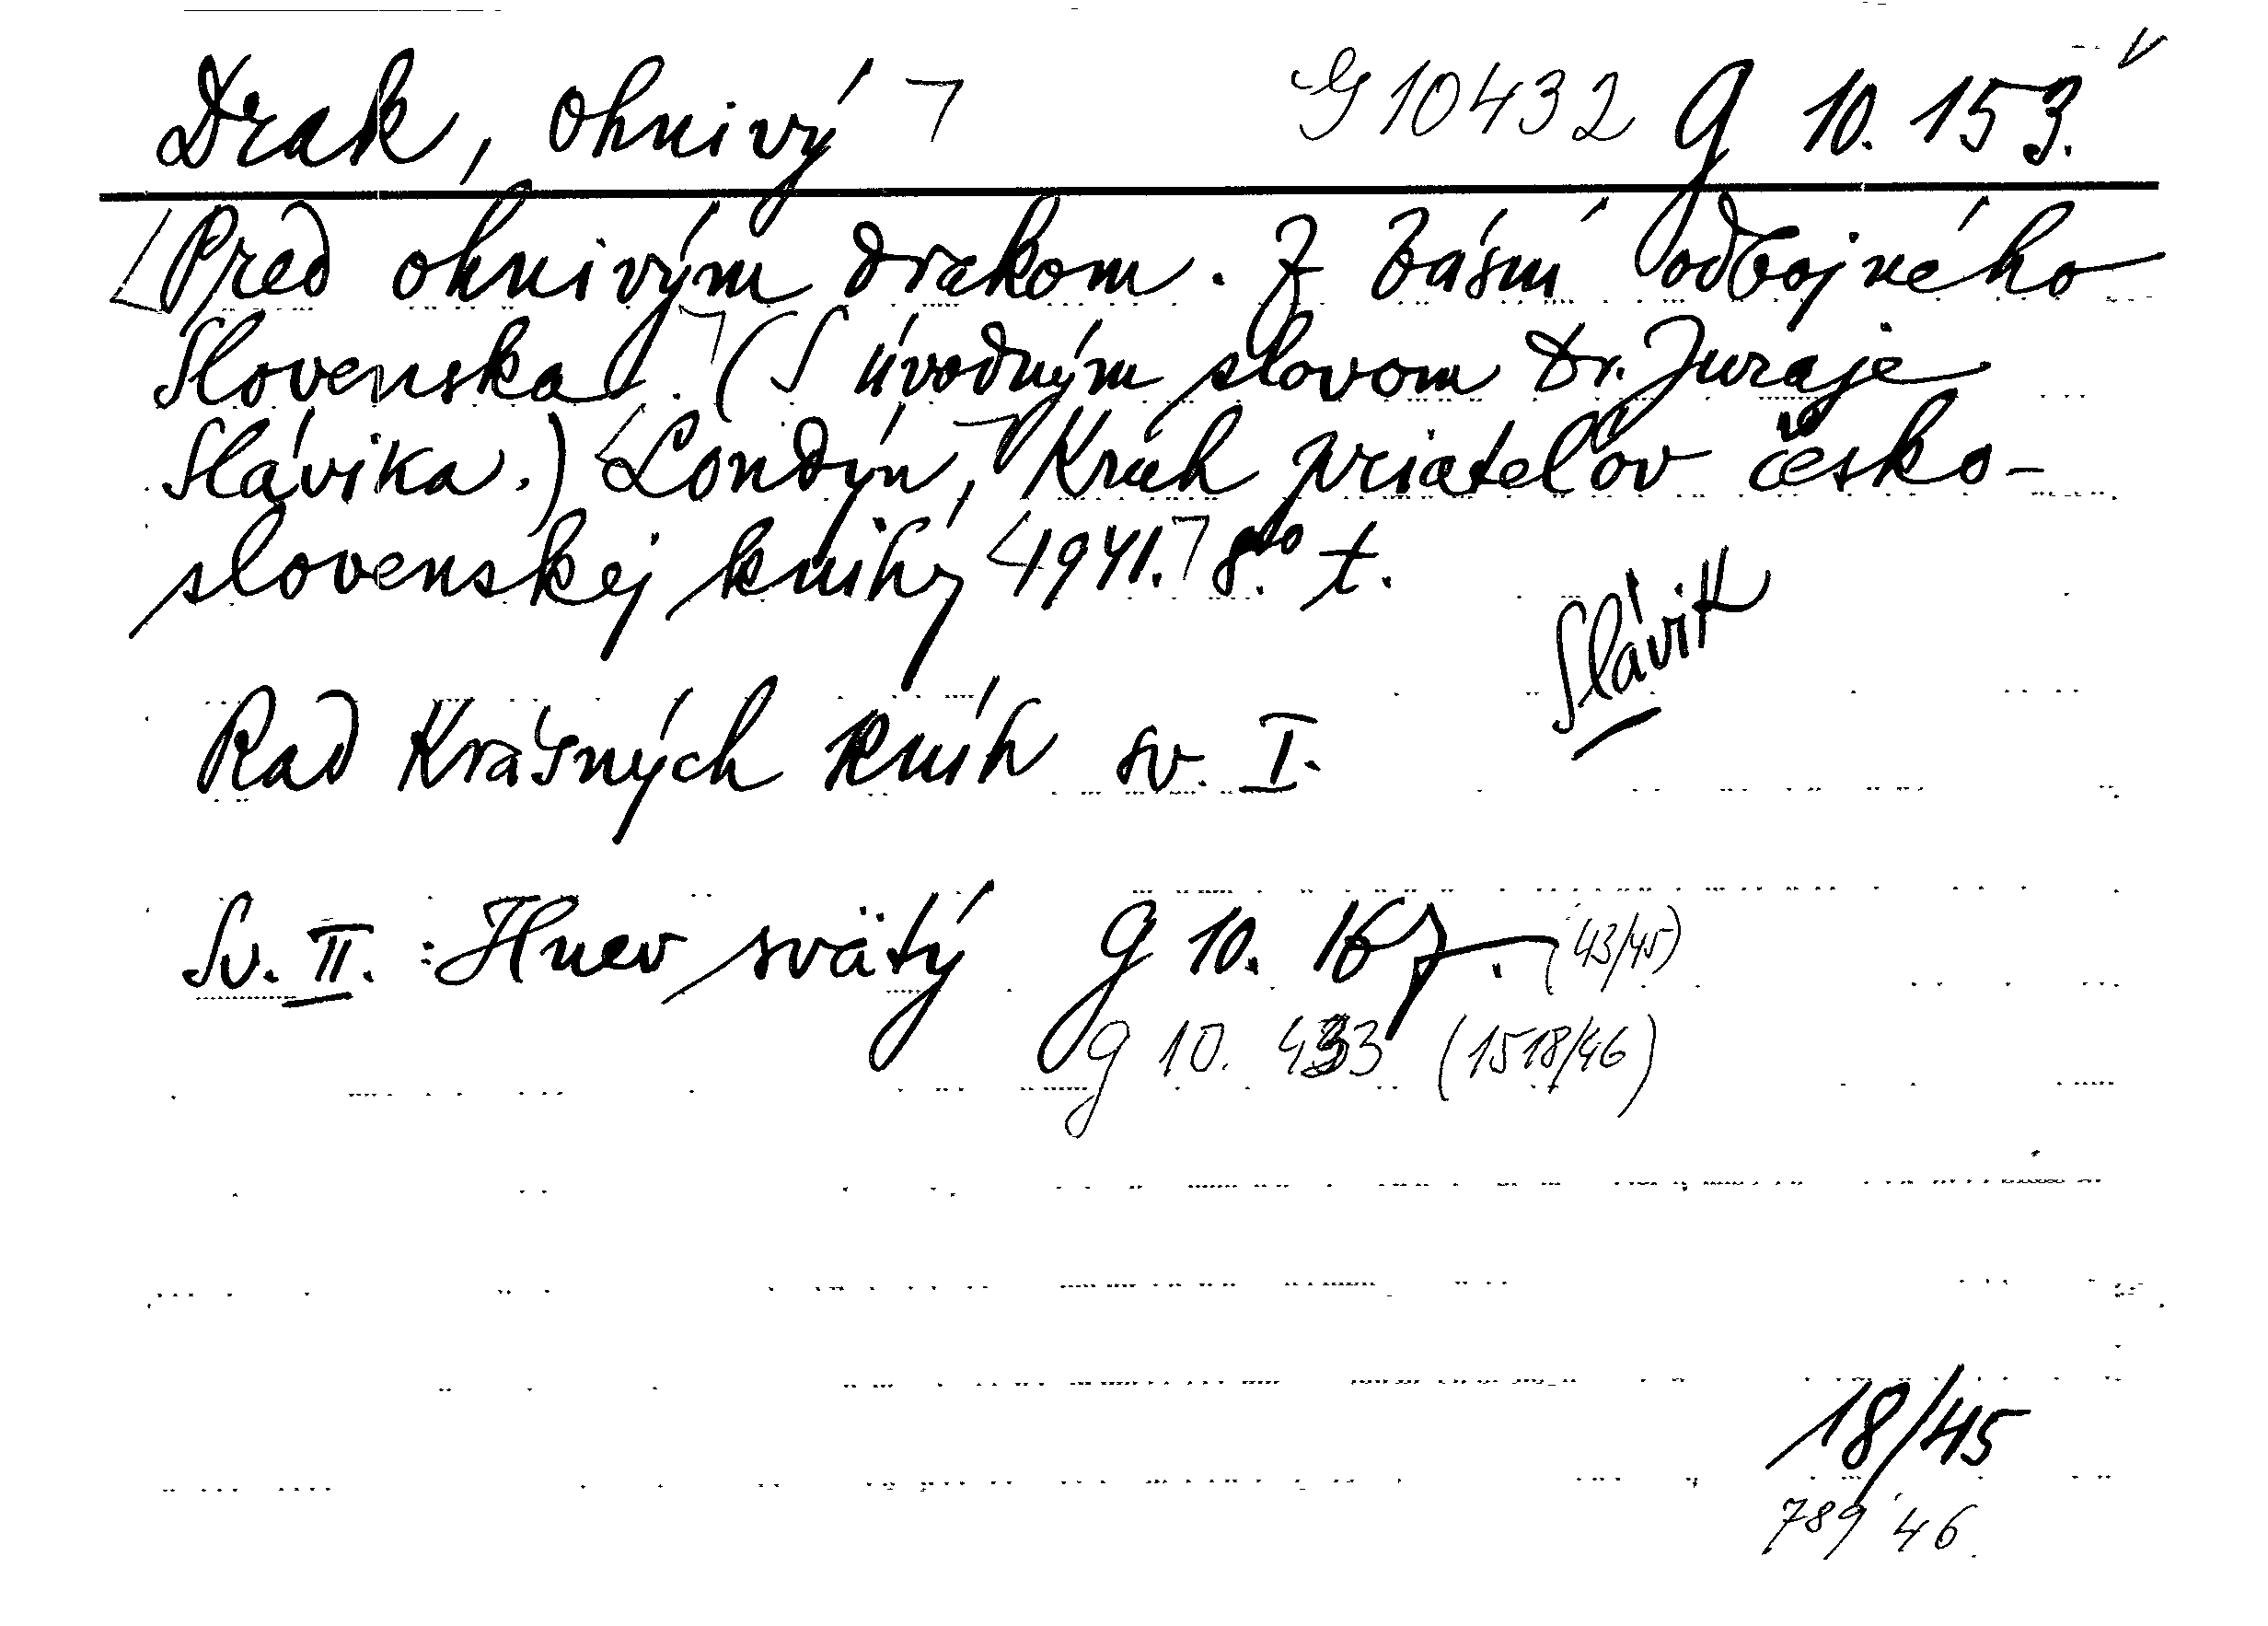 Drak, ohnivý G 10432 G 10.153.
Pred ohnivým drakom. Z básní odbojného
Slovenska. (S úvodným slovom Dr. Juraje
Slávika.) Londýn, Kruh priateľov česko-
slovenskej knihy 1941. 8° t.
Slávik
Rad Krásných kníh sv. I.
Sv. II. : Hnev svätý G 10. 167. (43/45)
G 10. 433 (1518/46)
18/45
789 46.